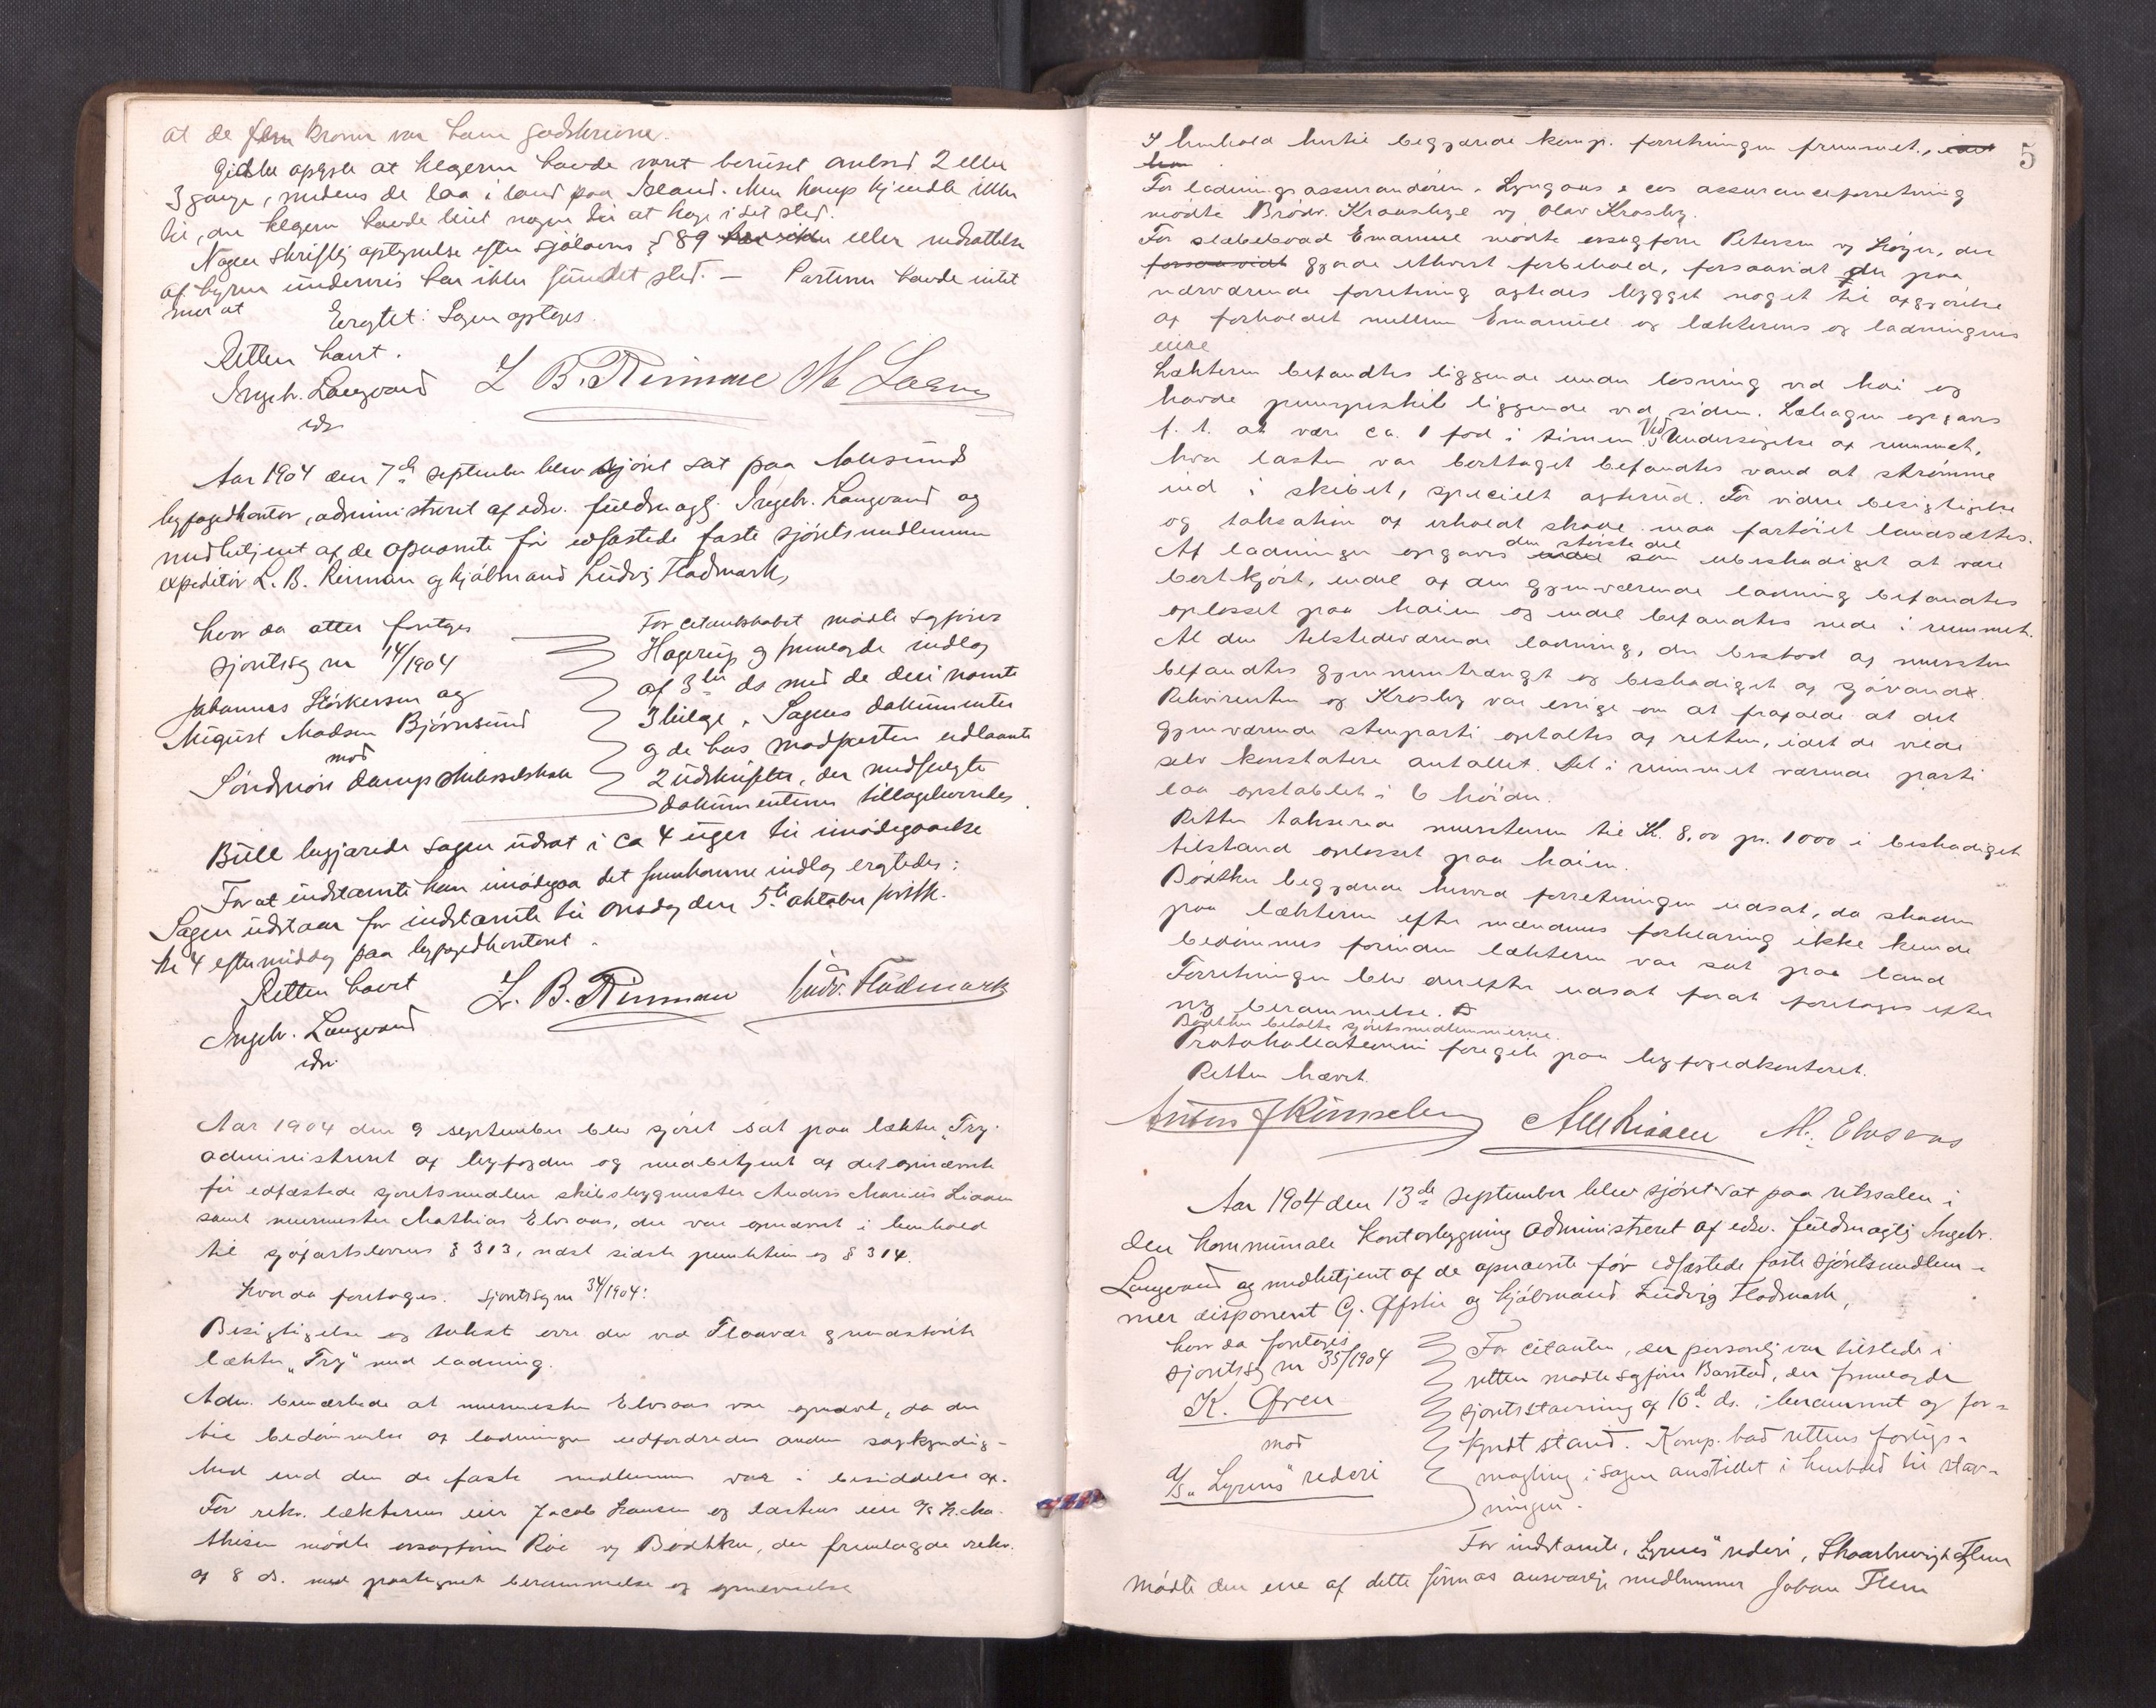 at de fem kroner var ham godskrevne.
Gidske oplyste at klageren havde været beruset ombord 2 eller
3 gange, medens de laa i land paa Island. Men komp kjendte ikke
til, om klageren havde leiet nogen til at hage i sit sted.
Nogen skriftlig optegnelse efter sjölovens § 89 eller nedsættelse
af hyren underveis har ikke fundet sted. — Parterne havde intet
mer at
Eragtet: Sagen optages.
Retten hævet.
Ingebr. Langvand L. B. Rinman
edsv
Aar 1904 den 7de september blev sjöret sat paa Aalesund
byfogedkontor, administreret af edsv. fuldmægt. Ingebr. Langvand og
medbetjent af de opnævnte før edfæstede faste sjöretsmedlemmer
expeditör L. B. Rinman og kjöbmand Ludvig Flodmark,
hvor da atter foretoges
sjöretssag nr 14/1904
Johannes Störkersen og
August Madsen Björnsund
mod
Söndmöre dampskibsselskab
For citantskabet mödte sagförer
Hagerup og fremlagde indlæg
af 3die ds med de deri nævnte
3 bilage. Sagens dokumenter
og de hos modparten udlaante
2 udskrifter, der medfulgte
dokumenterne tilbageleveredes.
Bull begjærede sagen udsat i ca 4 uger til imödegaaelse
For at indstævnte kan imödegaa det fremkomne indlæg eragtedes:
Sagen udstaar for indstævnte til onsdag den 5te oktober förstk.
kl 4 eftermiddag paa byfogedkontoret.
Retten hævet
Ingebr. Langvand L. B. Rinman Ludv. Flodmark
edsv.
Aar 1904 den 9 september blev sjöret sat paa lækter „Try"
administreret af byfogden og medbetjent af det opnævnte
før edfæstede sjöretsmedlem skibsbygmester Anders Marius Liaaen
samt murmester Mathias Elvsaas, der var opnævnt i henhold
til sjöfartslovens § 313, næst sidste punktum og § 314.
Hvor da foretoges. sjöretssag nr 34/1904:
Besigtigelse og takst over den ved Flaavær grundstödte
lækter „Try" med ladning.
Adm. bemærkede at murmester Elvsaas var opnævnt, da der
til bedömmelse af ladningen udfordredes anden sagkyndig-
hed end den de faste medlemmer var i besiddelse af.
For rekv. lækterens eier Jacob Hansen og lastens eier
mödte ovsagförer Roe og Bödtker, der fremlagde rekv.
af 8 ds. med paategnet berammelse og opnævnelse
5
I henhold hertil begjærede komp. forretningen fremmet, idet
han
For ladningsassurandören, Lyngaas & cos assuranceforretning
mödte Brödr. Kraasbye og Olav Krosby.
For slæbebaad Emanuel mödte ovsagförer Petersen og Höyer, der
forsaavidt gjorde ethvert forbehold, forsaavidt der paa
nærværende forretning agtedes bygget noget til afgjörelse
af forholdet mellem Emanuel og lækterens og ladningens
eiere
Lækteren befandtes liggende under losning ved kai og
havde pumpeskib liggende ved siden. Lækagen opgaves
f. t. at være ca. 1 fod i timen. Ved Undersögelse af rummet,
hvor lasten var borttaget befandtes vand at strömme
ind i skibet, specielt agterud. For videre besigtigelse
og taksation af erholdt skade maa fartöiet landsættes.
Af ladningen opgaves den störste del som ubeskadiget at være
bortkjört, endel af den gjenværende ladning befandtes
oplosset paa kaien og endel befandtes nede i rummet.
Al den tilstedeværende ladning, der bestod af mursten
befandtes gjennemtrængt og beskadiget af sjövand.
Rekvirenten og Krosby var enige om at frafalde at det
gjenværende stenparti optaltes af retten, idet de vilde
selv konstatere antallet. Det i rummet værende parti
laa opstablet i 6 höider.
Retten takserede murstenen til K. 8,00 pr. 1000 i beskadiget
tilstand oplosset paa kaien.
Bödtker begjærede herved forretningen udsat, da skaden
paa lækteren efter mændenes forklaring ikke kunde
bedömmes forinden lækteren var sat paa land
Forretningen blev derefter udsat forat foretages efter
ny berammelse.
Bödtker betalte sjöretsmedlemmerne.
Protokollationen foregik paa byfogedkontoret.
Retten hævet.
AMLiaaen M. Elvsaas
Aar 1904 den 13de september blev sjöret sat paa retssalen i
den kommunale kontorbygning administreret af edsv. fuldmægtig Ingebr.
Langvand og medbetjent af de opnævnte før edfæstede faste sjöretsmedlem-
mer disponent G. og kjöbmand Ludvig Flodmark,
hvor da foretoges
sjöretssag nr 35/1904
K. Giren
mod
A/S „Lyrens" rederi
For citanten, der personlig var tilstede i
retten mödte sagförer Barstad, der fremlagde
sjöretsstævning af 10de ds. i berammet og for-
kyndt stand. Komp. bad rettens forligs-
mægling i sagen anstillet i henhold til stæv-
ningen.
For indstævnte, „Lyrens" rederi, Skaarbrevig & Flem
mödte den ene af dette firmas ansvarlige medlemmer Johan Flem